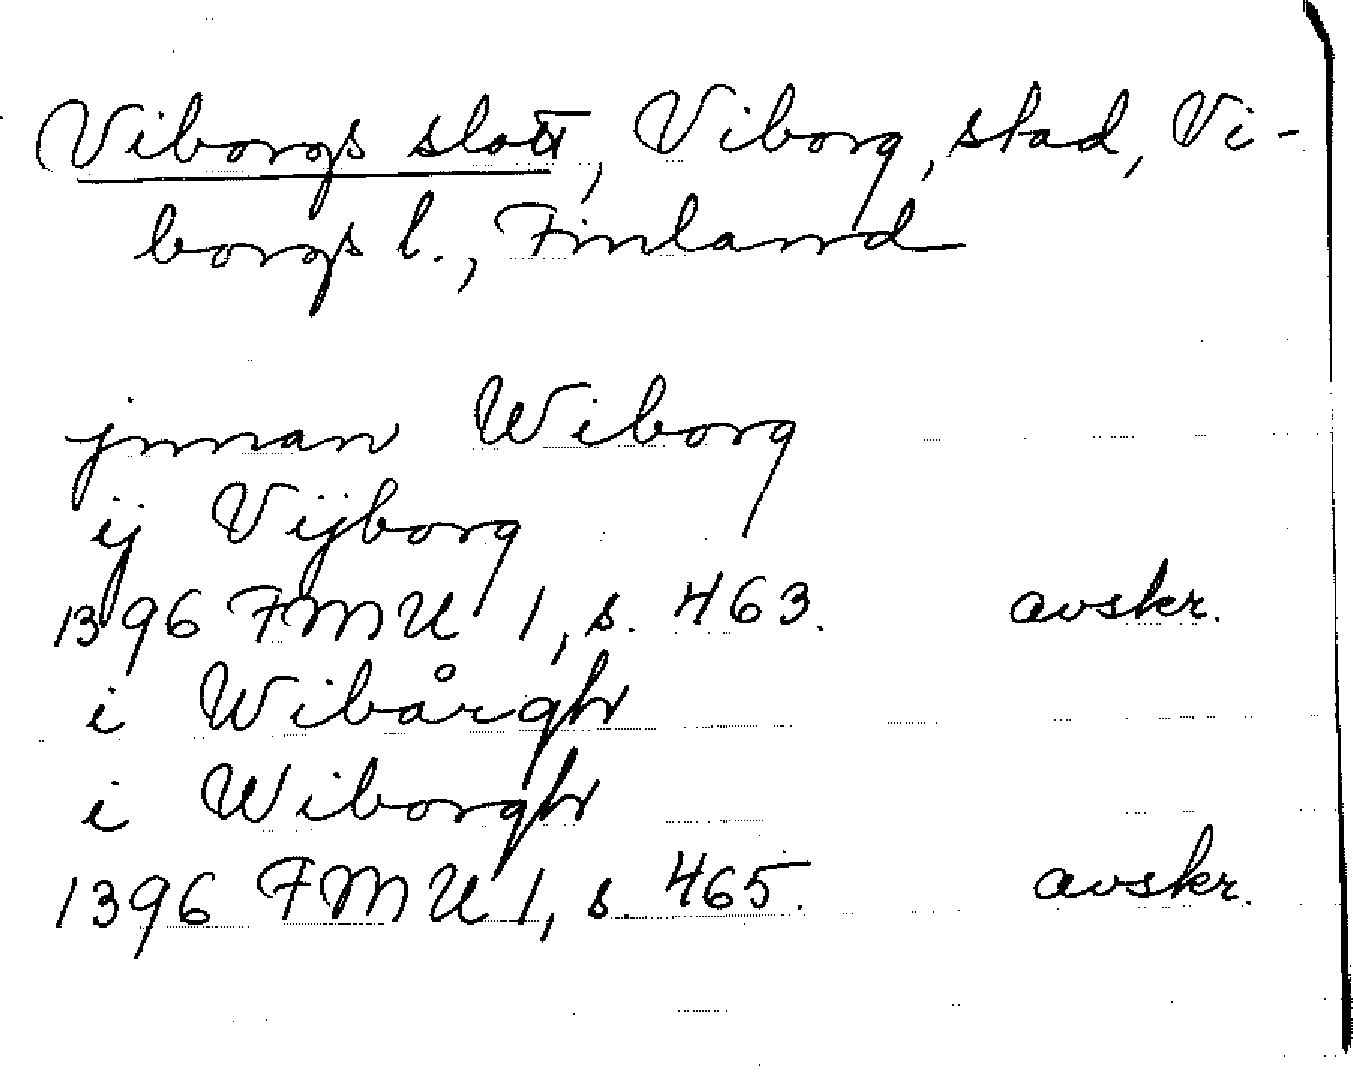 Viborgs slott, Viborg, stad, Vi-
borgs l., Finland
jnnan Wiborg
ij Vijborg
1396 FMU 1, s. 463. avskr.
i Wibårgh
i Wiborgh
1396 FMU 1, s. 465. avskr.